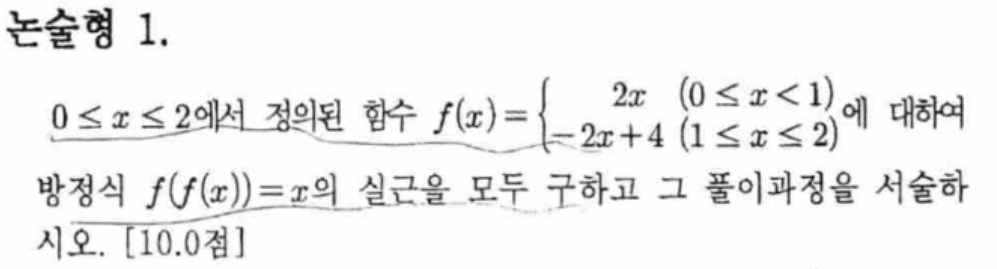 논술형 1.
0 ≤ x ≤ 2에서 정의된 함수 f(x) = { 2x (0 ≤ x < 1)
-2x+4 (1 ≤ x ≤ 2) 에 대하여
방정식 f(f(x)) = x의 실근을 모두 구하고 그 풀이과정을 서술하
시오. [10.0점]